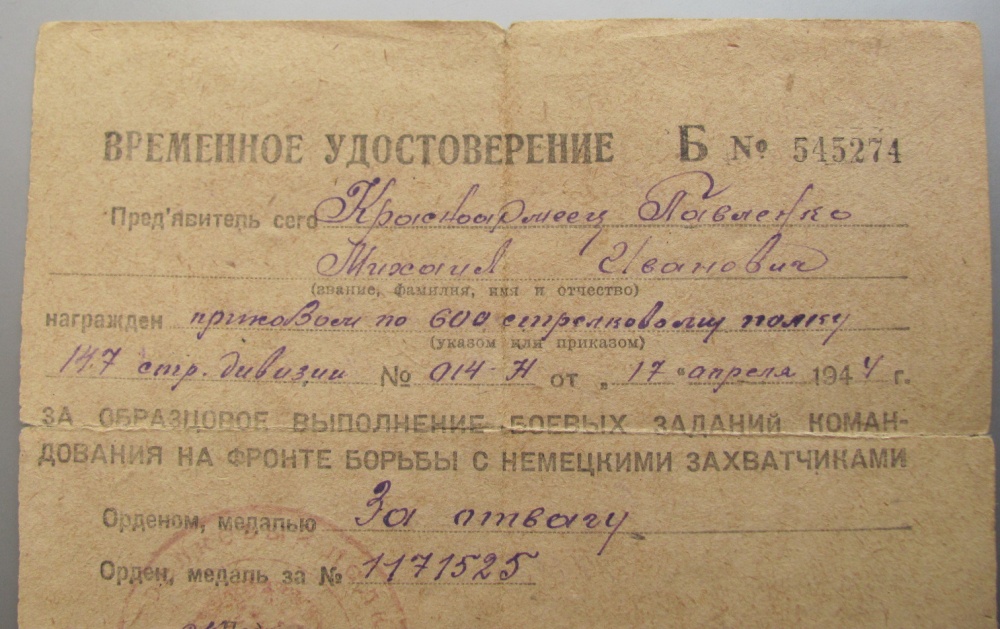 ВРЕМЕННОЕ УДОСТОВЕРЕНИЕ Б № 545274
Пред'явитель сего Красноармеец Павленко
Михаил Иванович
(звание, фамилия, имя и отчество)
награжден приказом по 600 стрелковому полку
(указом или приказом)
147 стр. дивизии № 014-Н от „17" апреля 1944 г.
ЗА ОБРАЗЦОВОЕ ВЫПОЛНЕНИЕ БОЕВЫХ ЗАДАНИЙ КОМАН-
ДОВАНИЯ НА ФРОНТЕ БОРЬБЫ С НЕМЕЦКИМИ ЗАХВАТЧИКАМИ
Орденом, медалью За отвагу
Орден, медаль за № 1171525